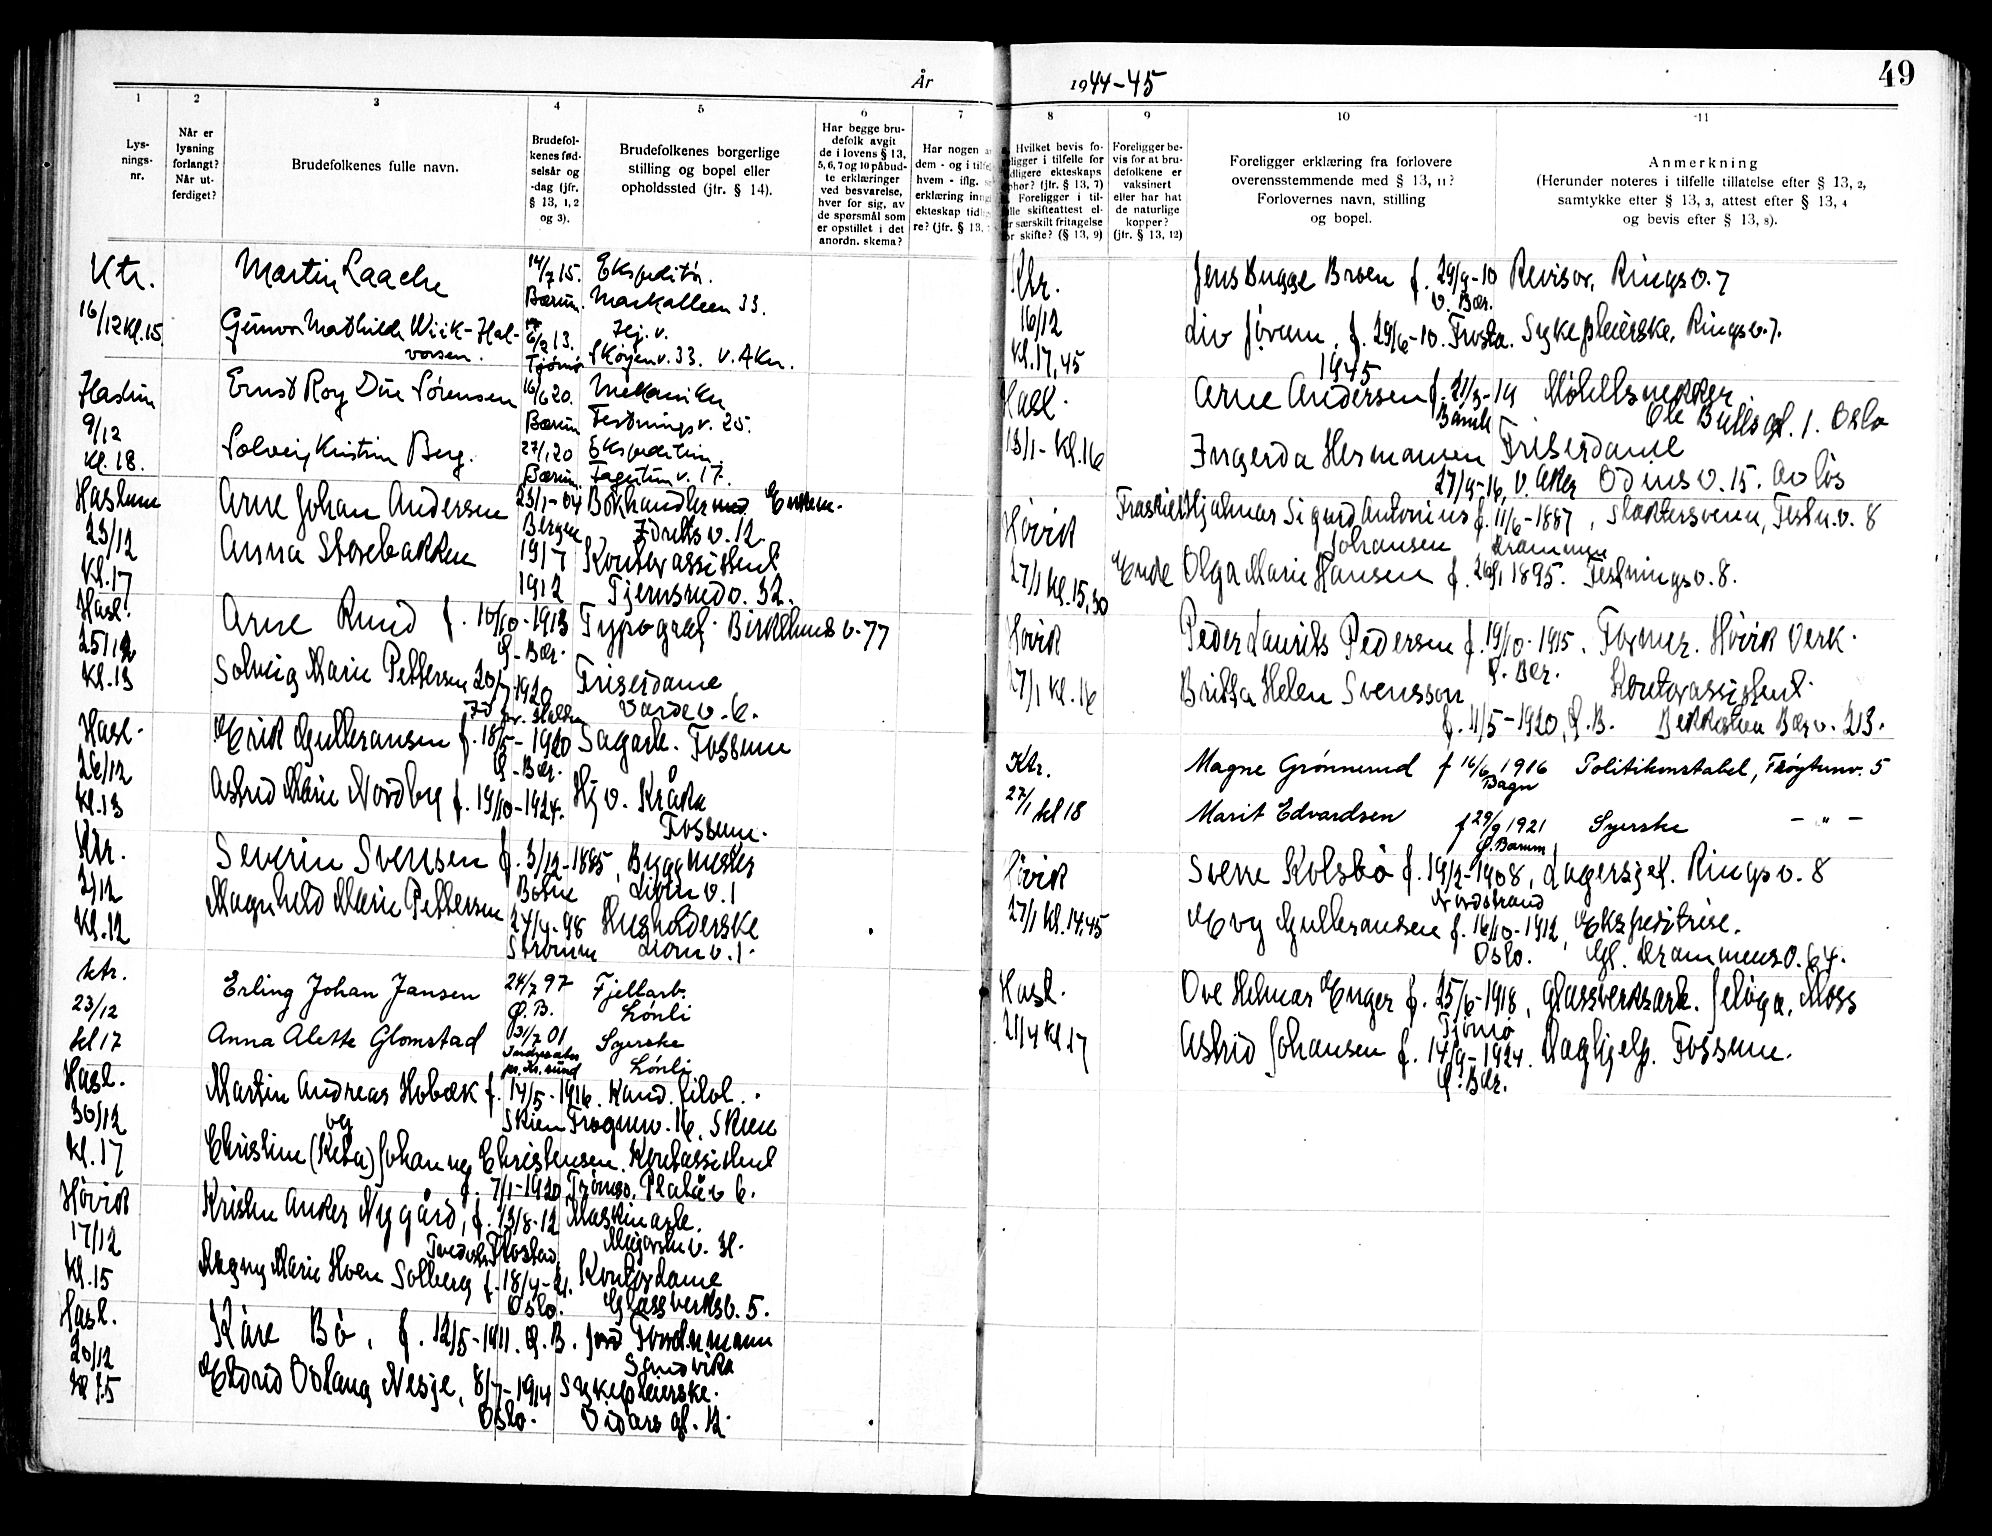 År 1944-45
49
1 2 3 4 5 6 7 8 9 10 11
Lys-
nings-
nr.
Når er
lysning
forlangt?
Når ut-
ferdiget?
Brudefolkenes fulle navn.
Brudefol-
kenes fød-
selsår og
-dag (jfr.
§ 13, 1, 2
og 3).
Brudefolkenes borgerlige
stilling og bopel eller
opholdssted (jfr. § 14).
Har begge bru-
defolk avgit
de i lovens § 13,
5, 6, 7 og 10 påbud-
te erklæringer
ved besvarelse,
hver for sig, av
de spørsmål som
er opstillet i det
anordn. skema?
Har nogen
dem - og i
hvem - iflg.
erklæring
ekteskap
re? (jfr. § 13,
Hvilket bevis fo-
religger i tilfelle for
ekteskaps
(jfr. § 13, 7)
Foreligger i til-
skifteattest el-
særskilt fritagelse
for skifte? (§ 13, 9)
Foreligger be-
vis for at bru-
defolkene er
vaksinert
eller har hat
de naturlige
kopper?
(jfr. § 13, 12)
Foreligger erklæring fra forlovere
overensstemmende med § 13, 11?
Forlovernes navn, stilling
og bopel.
Anmerkning
(Herunder noteres i tilfelle tillatelse efter § 13, 2,
samtykke efter § 13, 3, attest efter § 13, 4
og bevis efter § 13, 8).
Ktr. Martin Laache 14/7 15. Ekspeditør.
Bærum. Markalleen 33.
16/12 Kl. 15 Gunvor Mathilde Wiik-Hal-
vorsen. 13. Hj. v.
Tjømø Skøyenv. 33. V. Aker.
Haslum Ernst Roy Due Sørensen 16/6 20. Mekaniker
9/12 Bærum Festnings v. 25.
Kl. 18. Solveig Kristin Berg. 27/1 20 Ekspeditrise.
Bærum. Fagertun v. 17.
Haslum Arne Johan Andersen 23/1-04 Bokhandlermed.
23/12 Bergen Idretts v. 12.
Kl. 17 Anna Storebakken 1917 Kontorassistent
1912 Tjernsrud v. 32.
Hasl. Arne Rund f. 10/10-1913 Typograf. Birkelunds v. 77
25/12 Ø-Bær.
Kl. 13 Solveig Marie Pettersen 20/7 1920 Friserdame
Id pr. Halden Varde v. 6.
Hasl. Erik Gulbransen f. 18/5-1920 Sagarb. Fossum
26/12 Ø-Bær.
Kl. 13 Astrid Marie Nordby f. 19/10-1924. Hj v. Kråka
Fossum.
Ktr. Severin Svensen f. 3/12-1885, Byggmester
Botne Liom v. 1
Kl. 12 Magnhild Marie Pettersen 24/4-98 Husholderske
Strømm Liom v. 1.
ktr. Erling Johan Jansen 24/7 97 Fjellarb.
23/12 Ø. B. Lønli
kl 17 Anna Alette Glomstad 31/7 01 Syerske
pr. Kr. sund Lønli
Hasl. Martin Andreas Hobæk f. 14/5-1916. Kand. filol.
30/12 og Skien Frognerv. 16, Skien
Kl. 17 Christine (Keta) Johanne Christensen. Kontassistent
f. 7/1-1920 Tromsø. Platåv 6.
Høvik Kristen Anker Nygård, f. 13/8-12 Maskinarb.
17/12 Flostad
Kl. 15 Ragny Marie Hoen Solberg f. 18/4-21. Kontordame
Oslo. Glassverksv. 5.
Hasl. Kåre Bø, f. 12/5-1911. Ø. B.
20/12 Sandvika
Eldrid Oslaug Nesje, 8/7-1914 Sykepleierske.
Oslo. Vidars gt. 12.
Ktr. Jens Bugge Broen f. 29/9-10 Revisor, Rings v. 7
16/12 V. Bær.
Kl. 17,45 Liv Jørum, f. 29/6-10. Frosta. Sykepleierske, Rings v. 7.
1945
Hasl. Arne Andersen f. 21/3-19 Møbelsnekker
Bamble Ole Bulls gt. 1. Oslo
13/1-Kl. 16 Ingerda Hermansen Friserdame
27/9-16, V. Aker Odins v. 15. Avløs
Høvik Fraskilt Hjalmar Sigurd Antonius f. 11/6-1887, Slaktersvenn, Festn. v. 8
Johansen Drammen
27/1 Kl. 15,30 Enke Olga Marie Hansen f. 26/1 1895. Festnings v. 8.
Høvik Peder Laurits Pedersen f. 19/10-1915. Former. Høvik Verk.
Ø. Bær.
27/1 Kl. 16 Britta Helen Svensson Kontorassistent.
f. 4/5-1920, Ø. B. Bekkestua Bær v. 213.
Ktr. Magne Grønnerud f 16/6 1916 Politikonstabel, Frøytunv. 5
Bagn
27/1 kl 18 Marit Edvardsen f 29/9 1921 Syerske - " -
Ø. Bærum
Høvik Svenn Kolsbø f. 19/2-1908, Lagersjef. Rings v. 8
Nordstrand
27/1 Kl. 14,45 Evy Gulbransen f. 16/10-1912, Ekspeditrise.
Oslo. Gl. Drammens v. 64.
Hasl. Ove Helmar Enger f. 25/6-1918, Glassverksarb. Jeløya, Moss
Tjømø
21/4 Kl. 17 Astrid Johansen f. 14/9-1924. Daghjelp. Fossum.
Ø. Bær.